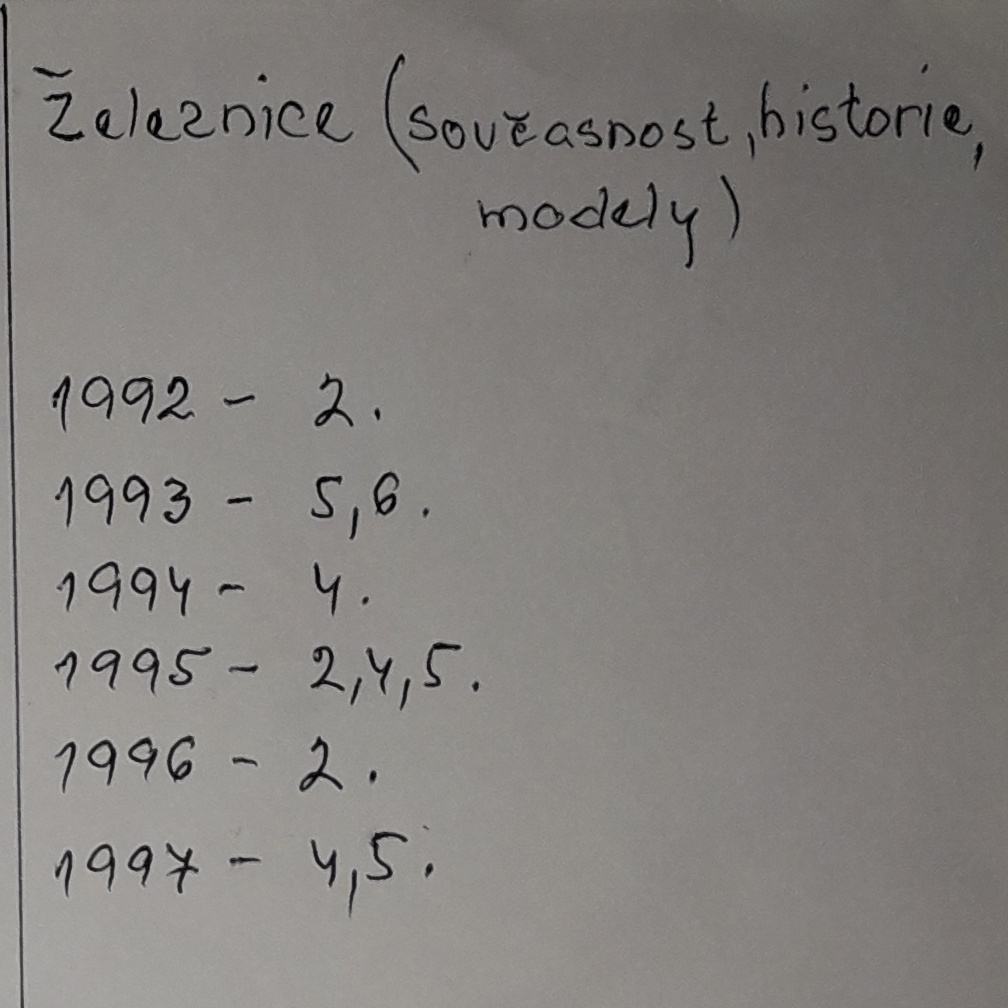 Železnice (současnost, historie,
modely)
1992 - 2.
1993 - 5,6.
1994 - 4.
1995 - 2,4,5.
1996 - 2.
1997 - 4,5.